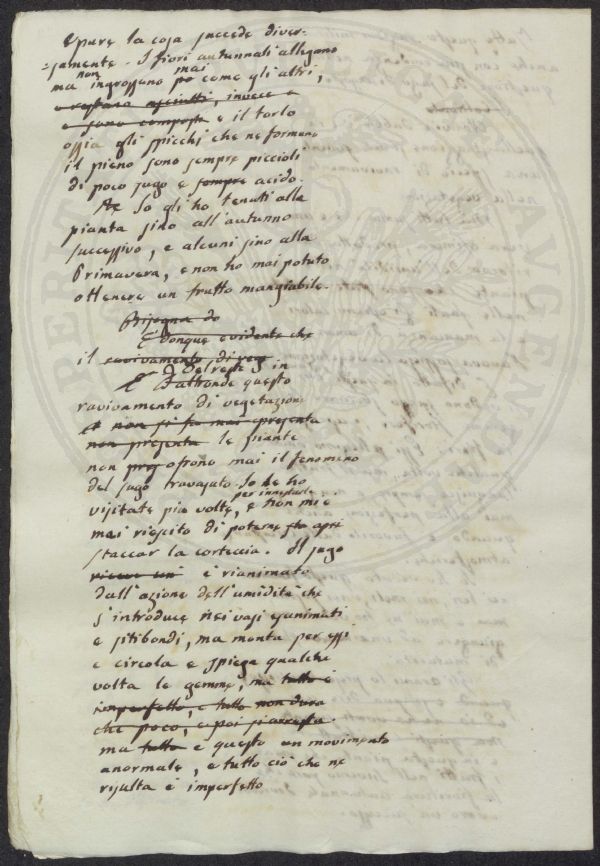 Epure la cosa succede diver-
=samente. I fiori autunnali allegano
ma non ingrossano mai come gli altri,
e restano asciutti, invece e
e sono composti e il torlo
ossia gli spicchi che ne formano
il pieno sono sempre piccioli
di poco sugo e sempre acido.
Io gli ho tenuti alla
pianta sino all'autunno
successivo, e alcuni sino alla
Primavera, e non ho mai potuto
ottenere un frutto mangiabile.
Bisogna do
E donque evidente che
il ravivamento di veg
Del resto in
E D'altronde questo
ravivamento di vegetazione
non si fa mai presenta
non presenta le piante
non pres ofrono mai il fenomeno
del sugo travasato. Io le ho
visitate più volte, per innestarle, e non mi è
mai riescito di poterne apri
staccar la corteccia. Il sugo
viene è rianimato
dall'azione dell'umidità che
s'introduce nei vasi esanimati
e sitibondi, ma monta per essi
e circola e spiega qualche
volta le gemme, ma tutto è
imperfetto, e tutto non dura
che poco, e poi s'arresta.
ma tutto e questo un movimento
anormale, e tutto ciò che ne
risulta è imperfetto